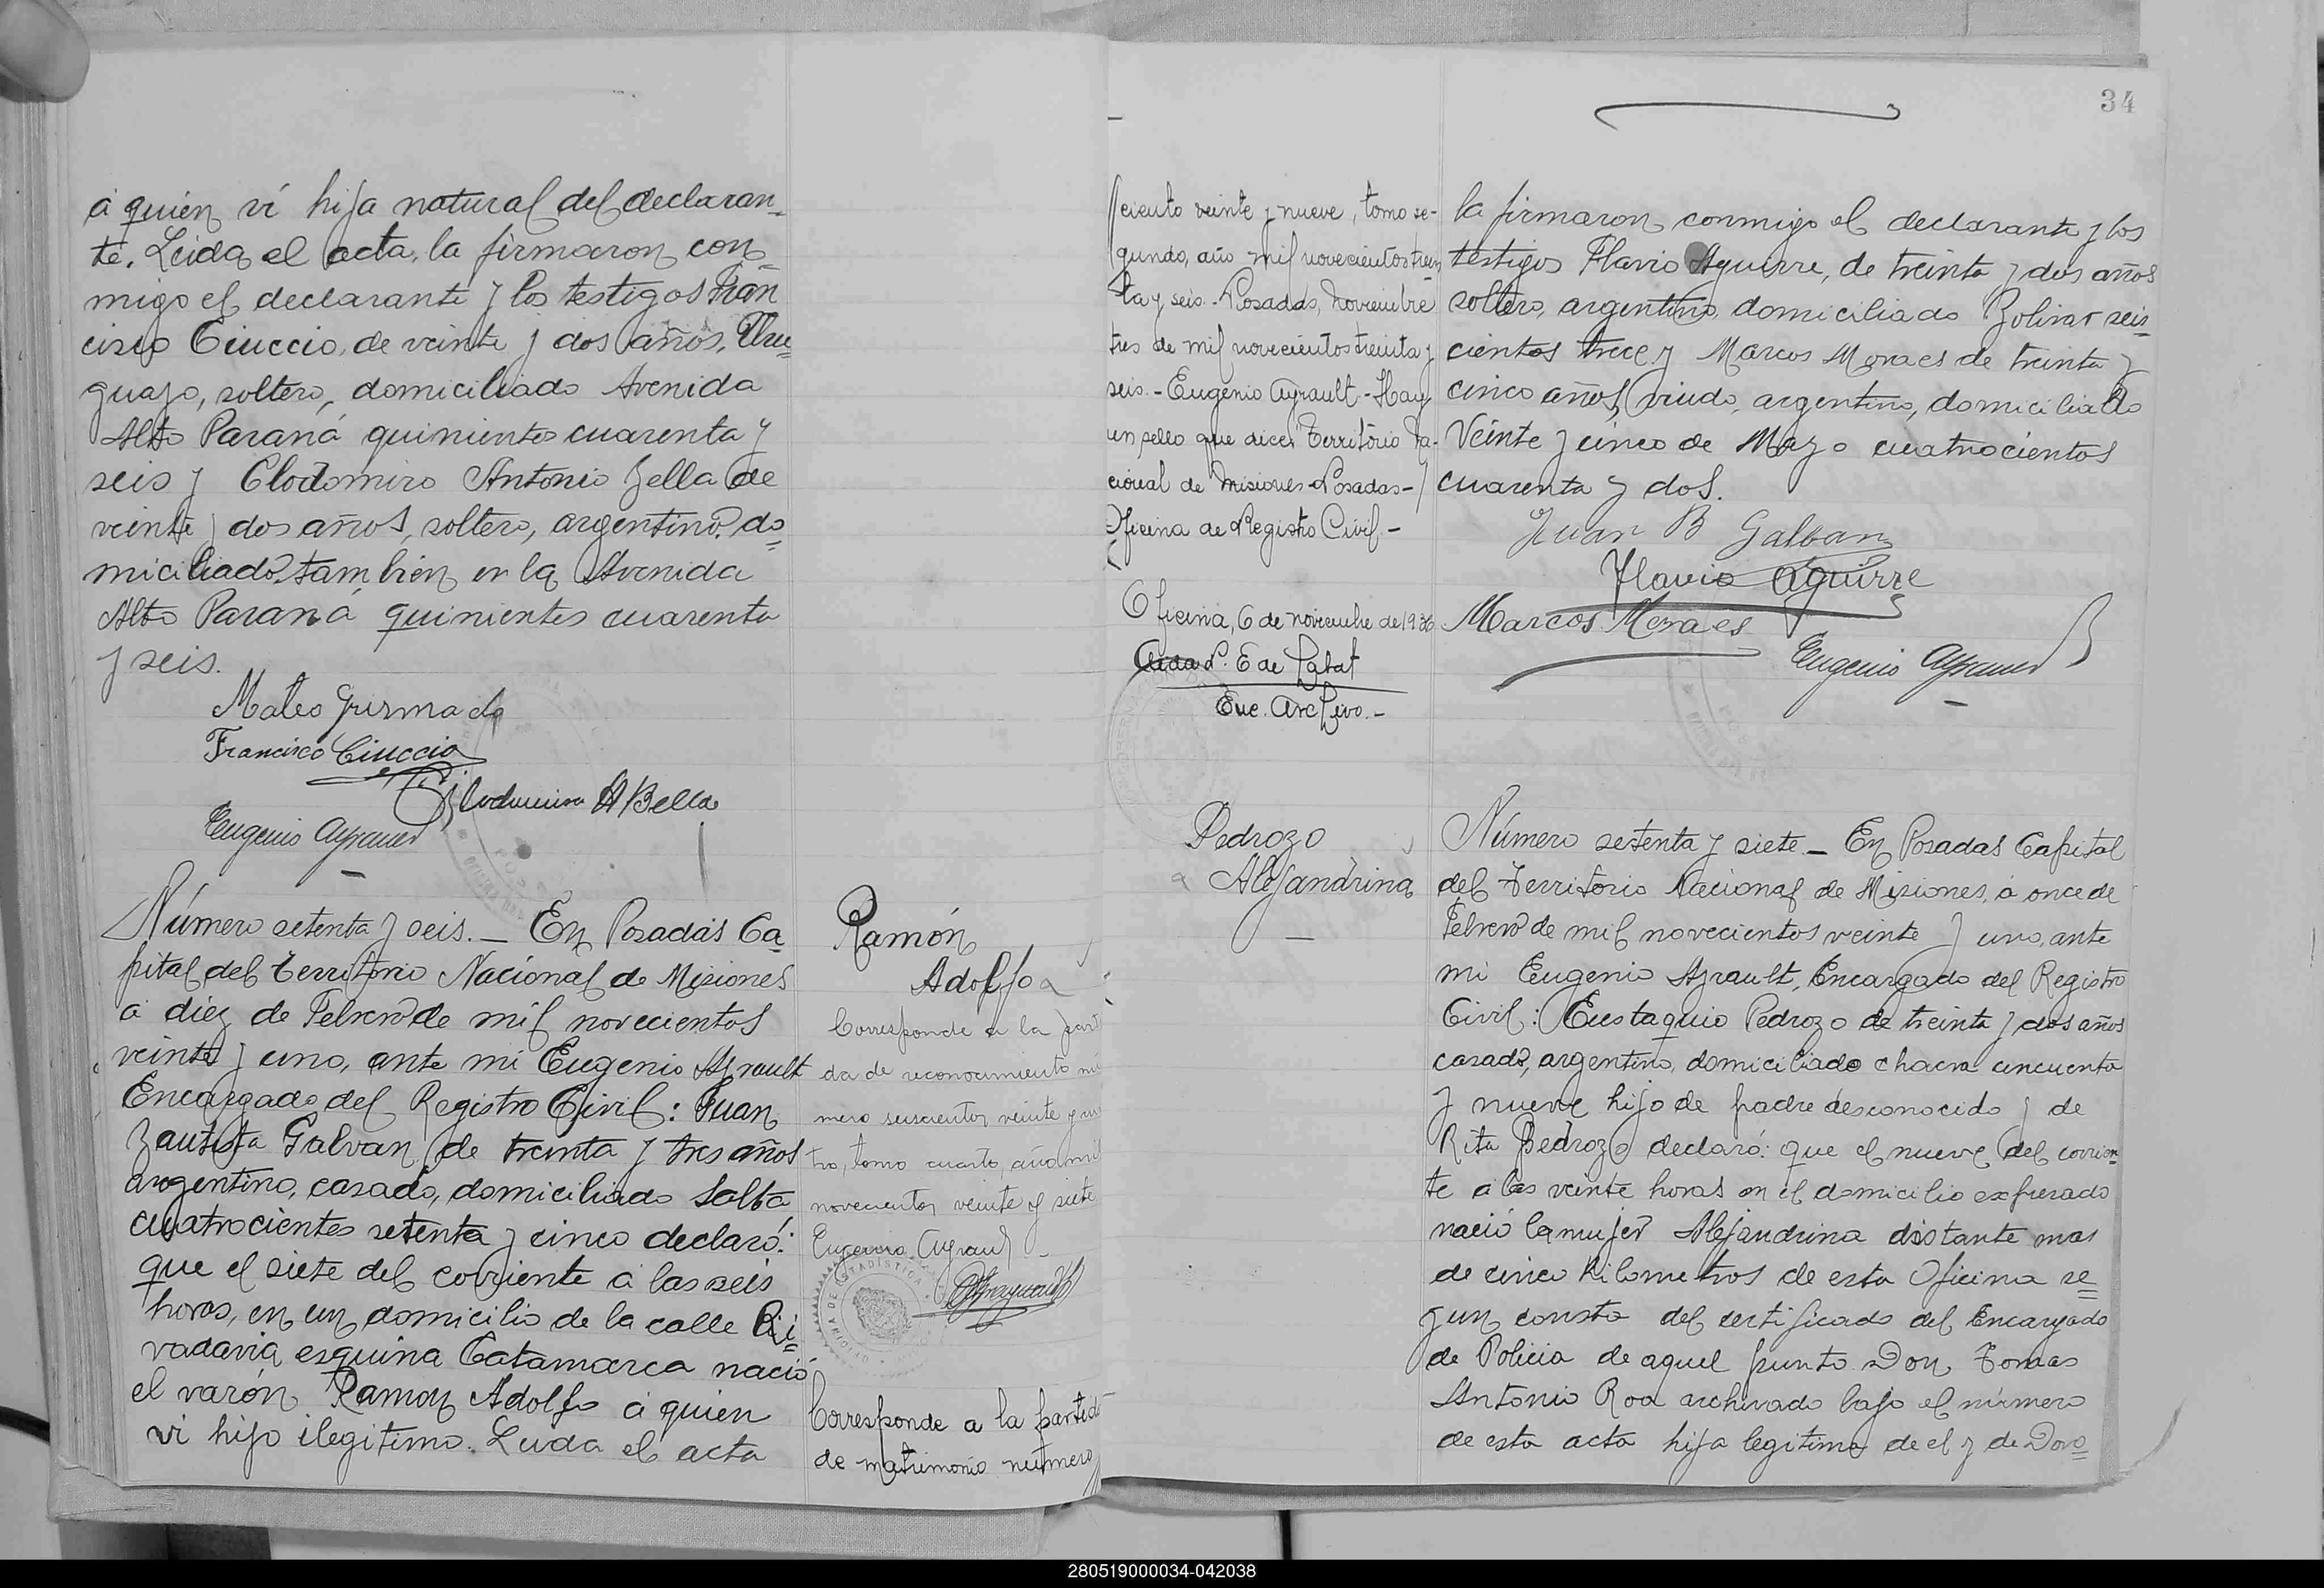 á quien ví hija natural del declaran-
te. Leida el acta, la firmaron con-
migo el declarante y los testigos Fran
cisco Ciuccio, de veinte y dos años, Uru-
guayo, soltero, domiciliado Avenida
Alto Paraná quinientos cuarenta y
seis y Clodomiro Antonio Bella de
veinte y dos años, soltero, argentino, do=
miciliado tambien en la Avenida
Alto Paraná quinientos cuarenta
y seis.
Mateo Grismado
Francisco Ciuccio
Clodomiro A Bella
Eugenio Ayrault
Número setenta y seis. — En Posadas Ca
pital del Territorio Nacional de Misiones
á diez de Febrero de mil novecientos
veinte y uno, ante mi Eugenio Ayrault
Encargado del Registro Civil: Juan
Bautista Galvan de treinta y tres años
argentino, casado, domiciliado Salta
cuatrocientos setenta y cinco declaró:
que el siete del corriente á las seis
horas, en un domicilio de la calle Ri=
vadavia esquina Catamarca nació
el varón Ramon Adolfo á quien
vi hijo ilegitimo. Leida el acta
Ramón
Adolfo
Corresponde a la parti
da de reconocimiento nú
mero seiscientos veinte y
tro, tomo cuarto, año mil
novecientos veinte y siete
Eugenio Ayrault
OFICINA DE ESTADISTICA
Corresponde a la partida
de matrimonio número
34
ciento veinte y nueve, tomo se-
gundo, año mil novecientos trein
ta y seis.- Posadas, noviembre
tres de mil novecientos treinta y
seis.- Eugenio Ayrault.- Hay
un sello que dice: Territorio Na-
cional de Misiones-Posadas-
Oficina de Registro Civil.-
Oficina, 6 de noviembre de 1936
E de
Enc. Archivo.-
la firmaron conmigo el declarante y los
testigos Flavio Aguirre, de treinta y dos años
soltero, argentino, domiciliado Bolivar seis=
cientos trece y Marcos Moraes de treinta y
cinco años, viudo, argentino, domiciliado
Veinte y cinco de Mayo cuatrocientos
cuarenta y dos.
Juan B Galvan
Flavio Aguirre
Marcos Moraes
Eugenio Ayrault
Pedrozo
Alejandrina
Número setenta y siete — En Posadas Capital
del Territorio Nacional de Misiones, á once de
Febrero de mil novecientos veinte y uno, ante
mi Eugenio Ayrault, Encargado del Registro
Civil: Eustaquio Pedrozo de treinta y dos años
casado, argentino, domiciliado chacra cincuenta
y nueve hijo de padre desconocido y de
Rita Pedrozo declaró: que el nueve del corrien
te á las veinte horas en el domicilio expresado
nació la mujer Alejandrina distante mas
de cinco kilometros de esta Oficina se=
gun consta del certificado del Encargado
de Policia de aquel punto Don Tomas
Antonio Roa archivado bajo el número
de esta acta hija legitima de el y de Doro=
280519000034-042038